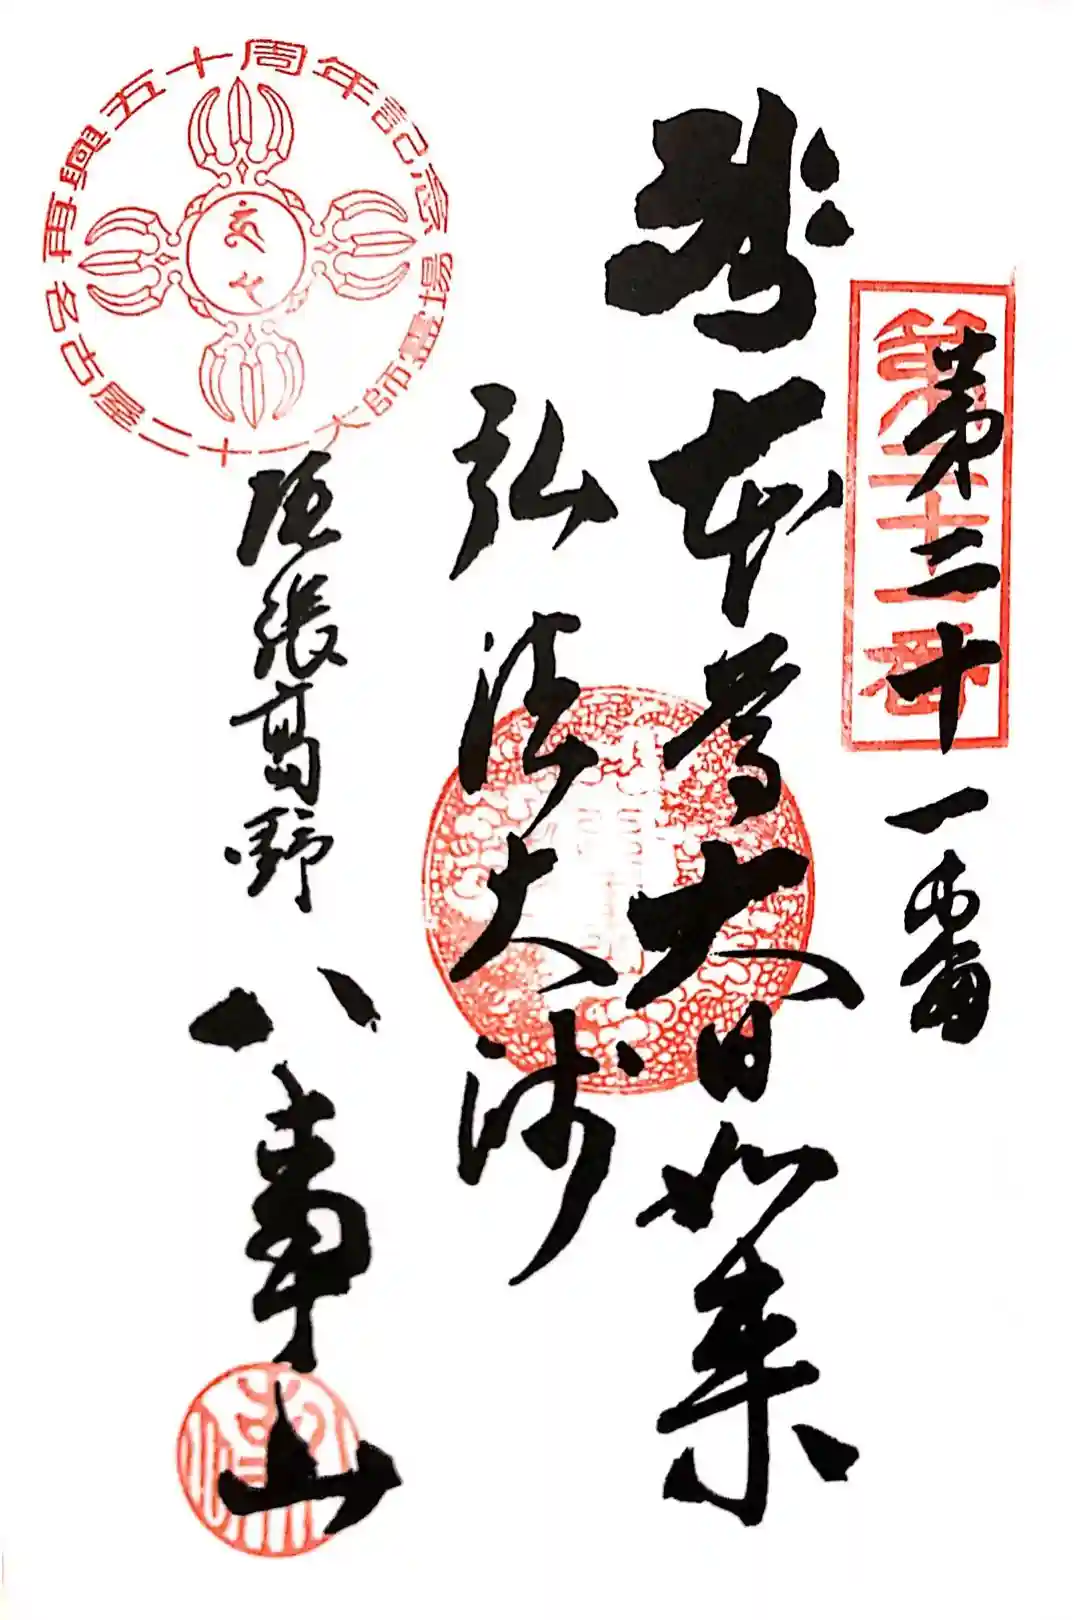 第二十一番
第二十一番
本尊大日如来
弘法大師
再興五十周年記念
名古屋二十一大師霊場
尾張高野
八事山